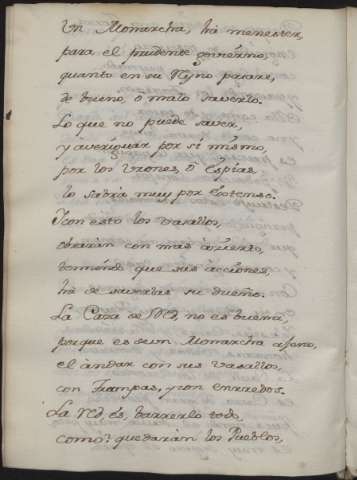 Un Monarcha, há menester,
para el prudente govierno,
quanto en su Rẏno pasare,
de bueno, o malo saverlo.
Lo que no puede saver,
y averiguar por sí mismo,
por los Uxones, ō Espias
lo sabria muy por Extenso.
Y con esto los vasallos,
obrarian con mas acierto,
temiendo que sus acciones,
há de saverlas su dueño.
La Caza de Red, no es buena
porque es de un Monarcha ageno,
el andar con sus vasallos,
con Trampas, y con enredos.
La red, és barrerlo todo,
como? quedarian los Pueblos,